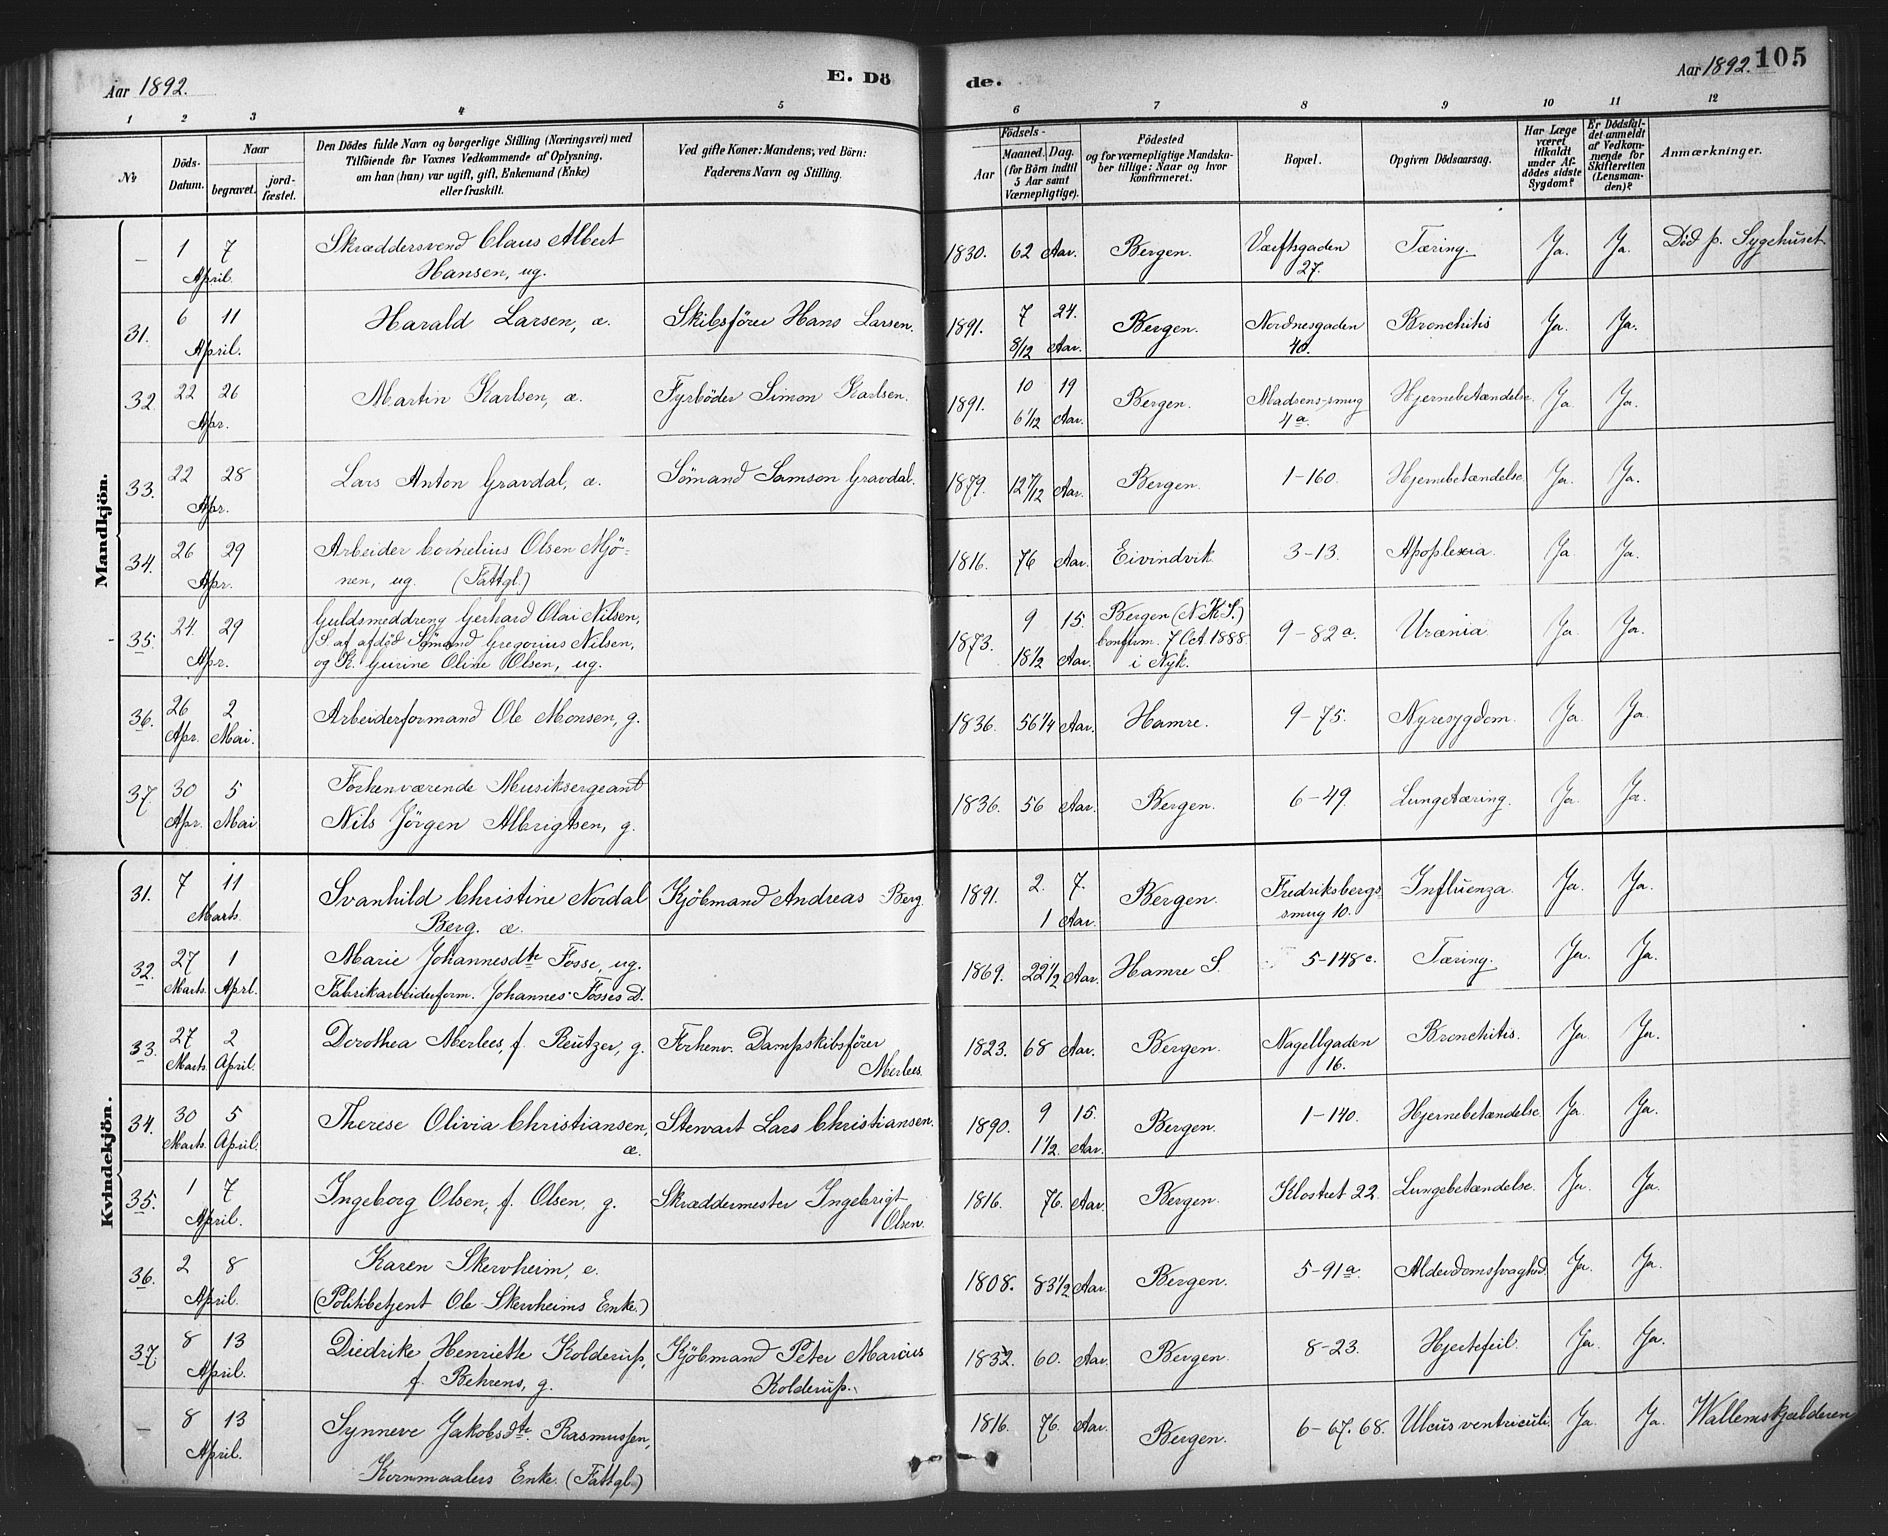 Aar 1892.
E. Dö
de.
Aar 1892. 105
1 2 3 4 5 6 7 8 9 10 11 12
No
Döds-Datum.
Naar
begravet.
jordfæstet.
Den Dödes fulde Navn og borgerlige Stilling (Næringsvei) med
Tilföiende for Voxnes Vedkommende af Oplysning,
om han (hun) var ugift, gift, Enkemand (Enke)
eller fraskilt.
Ved gifte Koner: Mandens, ved Börn:
Faderens Navn og Stilling.
Födsels-
Aar
Maaned. Dag.
(for Börn indtil
5 Aar samt
Værnepligtige).
Födested
og for værnepligtige Mandskaber tillige: Naar og hvor
konfirmeret.
Bopæl.
Opgiven Dödsaarsag.
Har Læge
været
tilkaldt
under Afdödes sidste
Sygdom?
Er Dödsfaldet anmeldt
af Vedkommende for
Skifteretten
(Lensmanden)?
Anmærkninger.
Mandkjön.
— 1 7 Skræddersvend Claus Albert 1830. 62 Aar. Bergen. Værftsgaden Tæring. Ja. Ja. Död p. Sygehuset
April. Hansen, ug. 27.
31. 6 11 Harald Larsen, æ. Skibsförer Hans Larsen. 1891. 7 24. Bergen. Nordnesgaden Bronchitis Ja. Ja.
April. 8/12 Aar. 40.
32. 22 26 Martin Karlsen, æ. Fyrböder Simon Karlsen. 1891. 10 19 Bergen. Madsens-smug Hjernebetændelse. Ja. Ja.
Apr. 6 1/12 Aar. 4a.
33. 22 28 Lars Anton Gravdal, æ. Sömand Samson Gravdal. 1879. 12 7/12 Aar. Bergen. 1-160. Hjernebetændelse. Ja. Ja.
Apr.
34. 26 29 Arbeider Cornelius Olsen Mjö- 1816. 76 Aar. Eivindvik 3-13. Apoplexia. Ja Ja.
Apr. nen, ug. (Fattgl.)
35. 24. 29 Guldsmeddreng Gerhard Olai Nilsen, 1873. 9 15. Bergen (N.K.S.) 9-82a. Urænia Ja. Ja.
S. af afdöd Sömand Gregorius Nilsen, Confirm. 7 Oct 1888
Apr. og K. Gurine Oline Olsen, ug. 18 1/2 Aar. i Nyk.
36. 26 2 Arbeiderformand Ole Monsen, g. 1836. 56 1/4 Aar. Hamre. 9-75. Nyresygdom. Ja. Ja.
Apr. Mai.
37. 30 5 Forhenværende Musiksergeant 1836. 56 Aar. Bergen. 6-49. Lungetæring. Ja. Ja.
Apr. Mai Nils Jörgen Albrigtsen, g.
Kvindekjön.
31. 7 11 Svanhild Christine Nordal Kjöbmand Andreas Berg 1891. 2. 7. Bergen. Fredriksbergs- Influenza. Ja. Ja.
Marts. Berg. æ. 1 Aar. smug 10.
32. 27 1 Marie Johannesdtr Fosse, ug. 1869. 22 1/2 Aar. Hamre S. 5-148c. Tæring. Ja. Ja.
Marts. Aprl. Fabrikarbeiderform. Johannes Fosses D.
33. 27 2 Dorothea Merlees, f. Reutzer, g. Forhenv. Dampskibsförer 1823. 68 Aar. Bergen. Nagellgaden Bronchitis. Ja. Ja.
Marts. April. Merlees. 16.
34. 30 5 Therese Olivia Christiansen, Stewart Lars Christiansen. 1890. 9 15. Bergen. 1-140. Hjernebetændelse. Ja. Ja.
Marts. April. æ. 1 1/2. Aar.
35. 1 7 Ingeborg Olsen, f. Olsen, g. Skræddermester Ingebrigt 1816. 76. Aar. Bergen. Klostret 22. Lungebetændelse. Ja. Ja.
April. Olsen.
36. 2 8 Karen Skervheim, e. 1808. 83 1/2 Aar. Bergen. 5-91a. Alderdomssvaghed. Ja. Ja.
April. (Politibetjent Ole Skervheims Enke.)
37. 8 13 Diedrike Henriette Kolderup, Kjöbmand Peter Marcus 1832. 60. Aar. Bergen. 8-23. Hjertefeil. Ja. Ja.
April. f. Behrens, g. Kolderup.
— 8 13 Synneve Jakobsdtr. Rasmussen, 1816. 76. Aar. Bergen. 6-67.68. Ulcus ventriculi. Ja. Ja. Wallemskjælderen
April. Kornmaalers Enke. (Fattgl.)